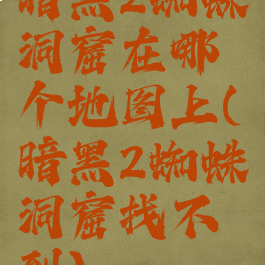 暗黑2蜘蛛
洞窟在哪
个地图上(
暗黑2蜘蛛
洞窟找不
到)